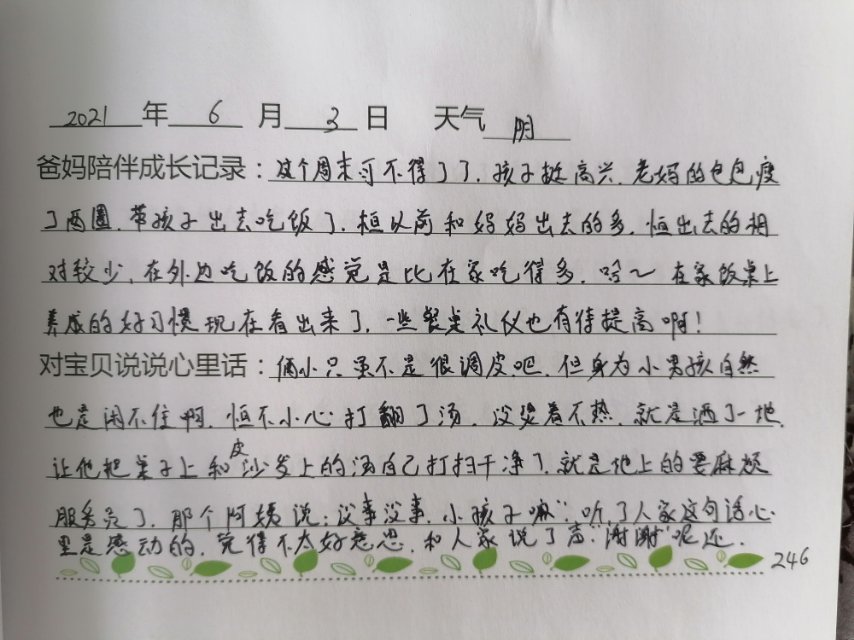 2021 年 6 月 3 日 天气 阴
爸妈陪伴成长记录：这个周末可不得了了，孩子挺高兴，老妈的包包瘦
了两圈，带孩子出去吃饭了，桓以前和妈妈出去的多，恒出去的相
对较少，在外边吃饭的感觉是比在家吃得多，哈～在家饭桌上
养成的好习惯现在看出来了，一些餐桌礼仪也有待提高啊！
对宝贝说说心里话：俩小只虽不是很调皮吧，但身为小男孩自然
也是闲不住啊，恒不小心打翻了汤，没烫着不热，就是洒了一地，
让他把桌子上和皮沙发上的汤自己打扫干净了，就是地上的要麻烦
服务员了，那个阿姨说：没事没事，小孩子嘛”，听了人家这句话心
里是感动的，觉得不太好意思，和人家说了声“谢谢”呢还．
246